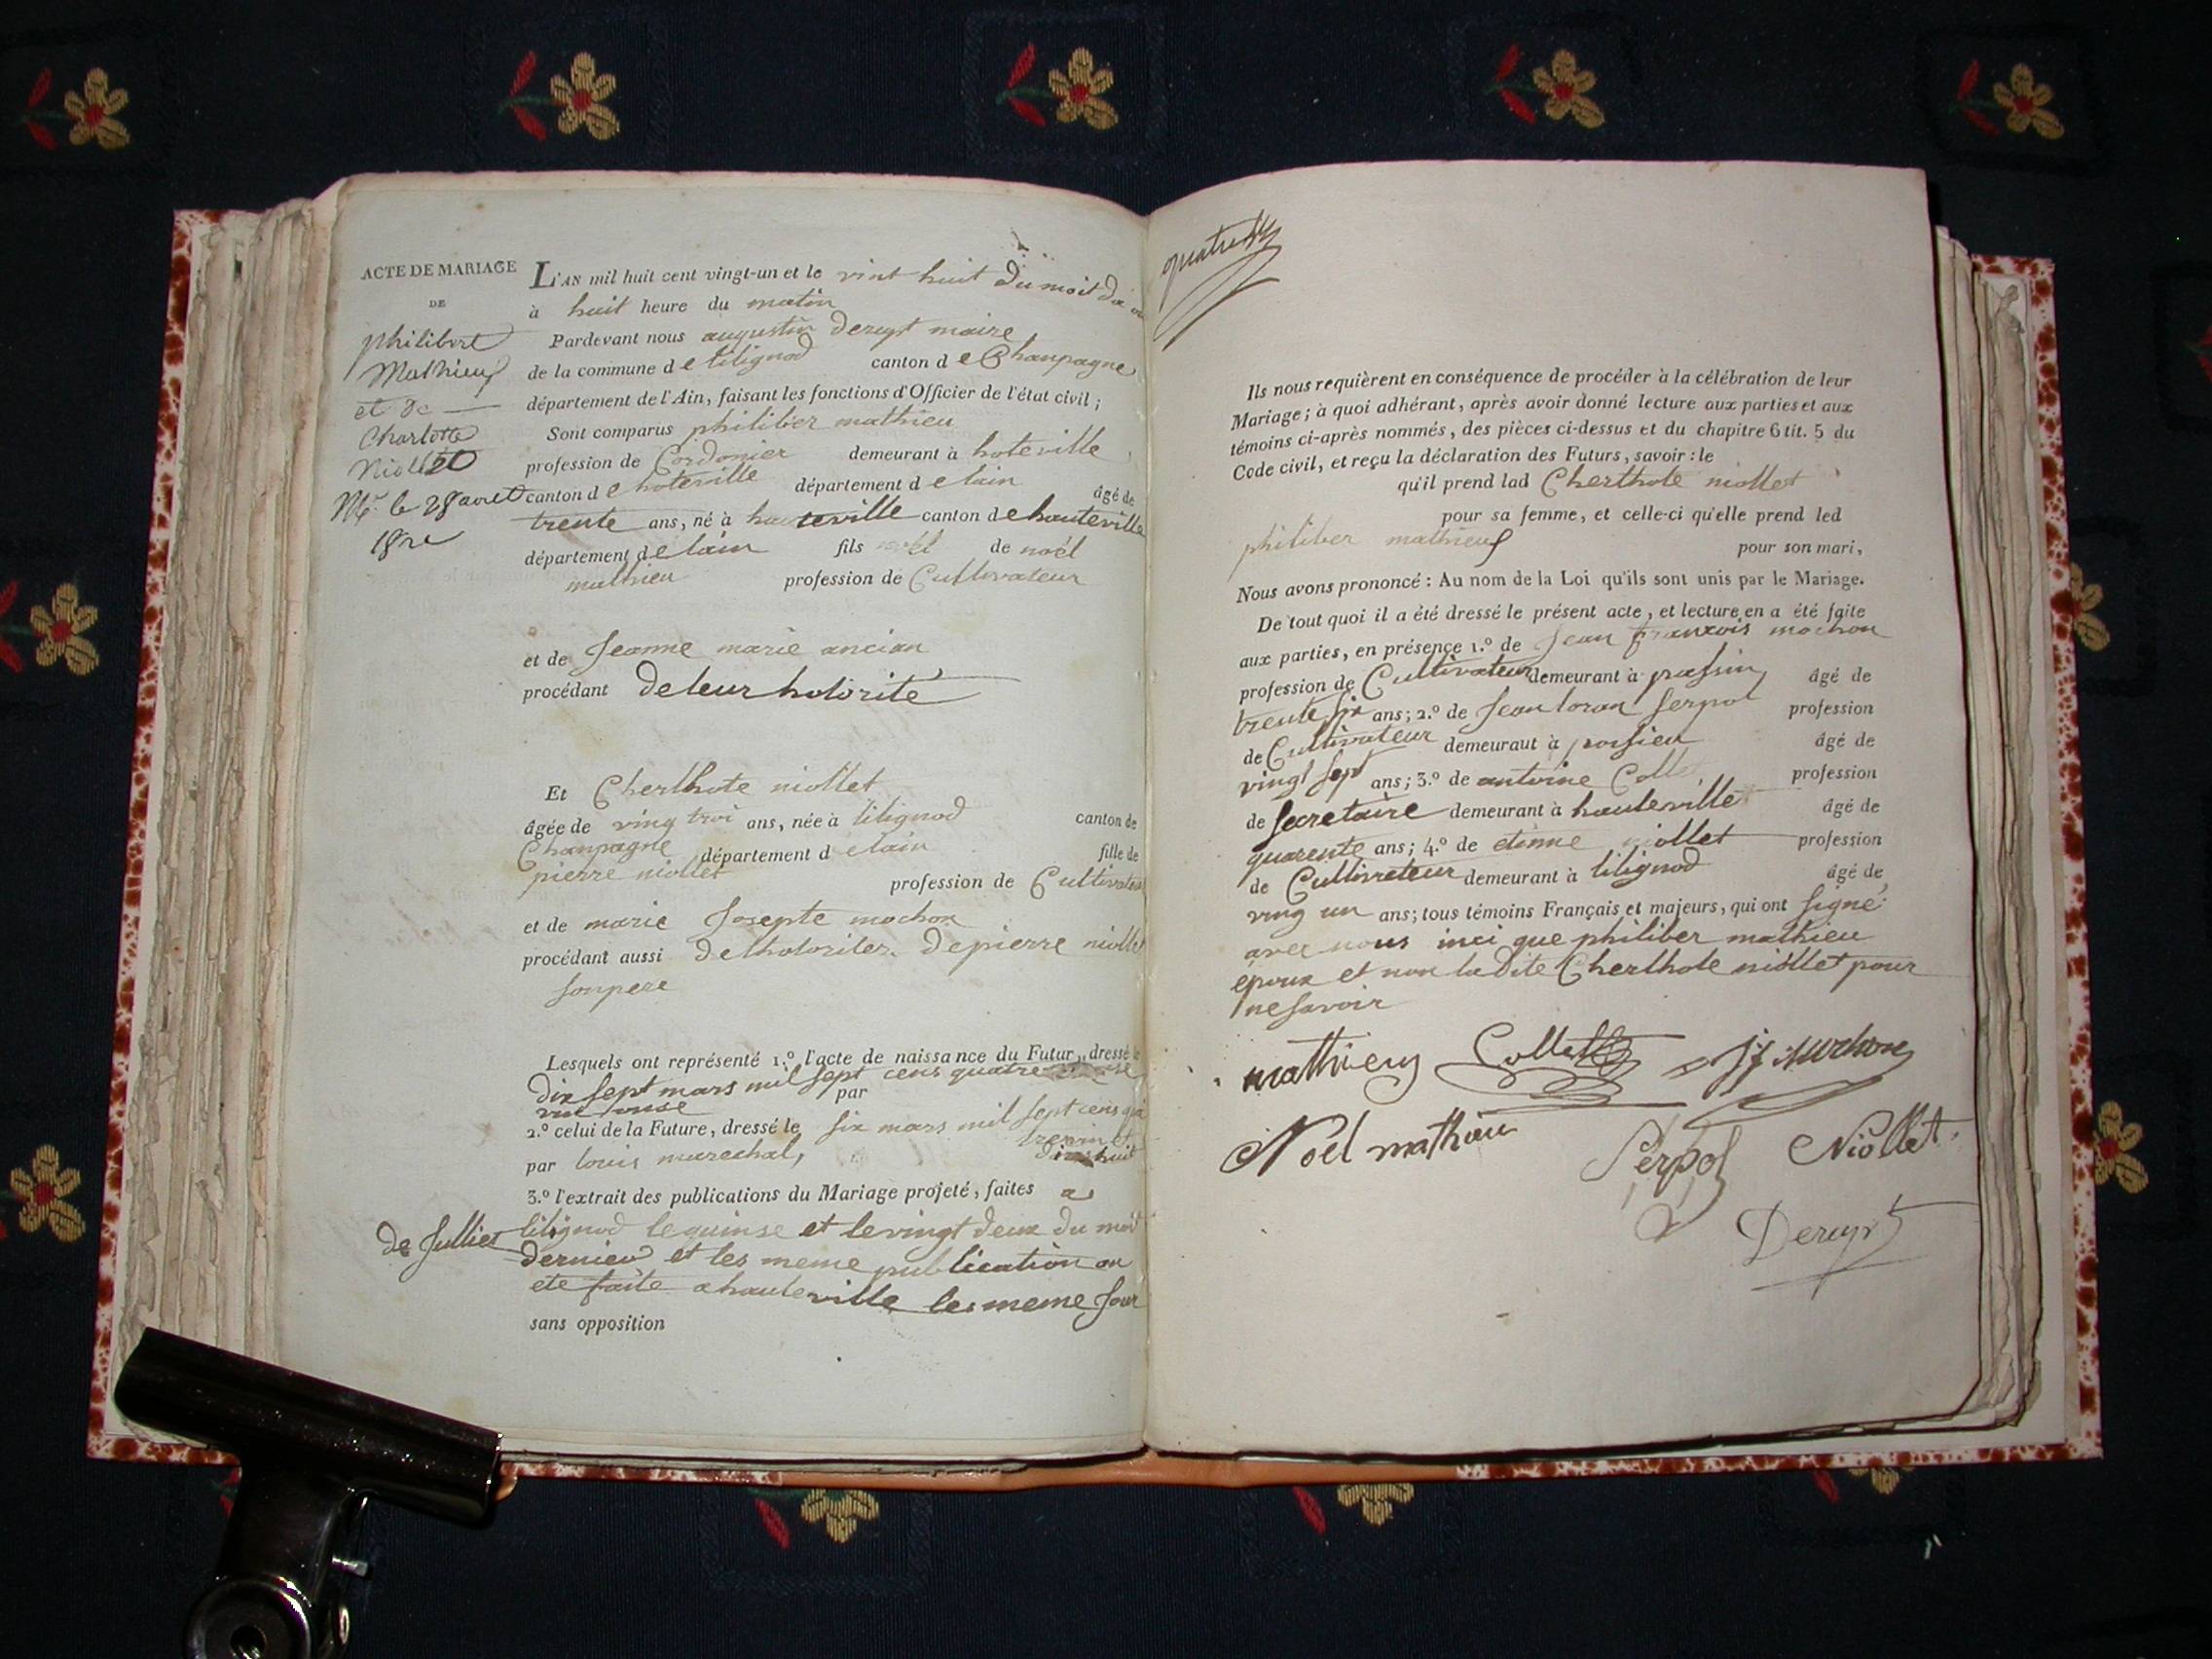 ACTE DE MARIAGE
DE
philibert
Mathieu
et de
Charlotte
Niollet
L'AN mil huit cent vingt-un et le vint huit du moit
à huit heure du matin
Pardevant nous augustin deruyt maire
de la commune d e lilignod canton d e Chanpagne
département de l'Ain, faisant les fonctions d'Officier de l'état civil ;
Sont comparus philiber mathieu
profession de Cordonier demeurant à hoteville
canton d e hoteville département d e lain âgé de
trente ans, né à hauteville canton d e hauteville
département d e lain fils de noël
mathieu profession de Cultivateur
et de Jeanne marie ancian
procédant de leur hotorité
Et Cherlhote niollet
âgée de ving troi ans, née à lilignod canton de
Chanpagne département d elain fille de
pierre niollet profession de Cultivateu
et de marie Josepte mochon
procédant aussi de lhotoriter de pierre niollet
son pere
Lesquels ont représenté 1.° l'acte de naissance du Futur, dressé le
dix sept mars mil sept cens quatre
par
2.° celui de la Future, dressé le six mars mil sept cens
par louis marechal,
3.° l'extrait des publications du Mariage projeté, faites a
de Julliet
lilignod le quinse et le vingt deux du moit
dernier et les meme publication on
ete faite a hauteville les meme Jour
sans opposition
Ils nous requièrent en conséquence de procéder à la célébration de leur
Mariage ; à quoi adhérant, après avoir donné lecture aux parties et aux
témoins ci-après nommés, des pièces ci-dessus et du chapitre 6 tit. 5 du
Code civil, et reçu la déclaration des Futurs, savoir : le
qu'il prend lad Cherlhote niollet
pour sa femme, et celle-ci qu'elle prend led
philiber mathieu pour son mari,
Nous avons prononcé : Au nom de la Loi qu'ils sont unis par le Mariage.
De tout quoi il a été dressé le présent acte, et lecture en a été faite
aux parties, en présence 1.° de Jean francois mochon
profession de Cultivateur demeurant à passin âgé de
trente six ans ; 2.° de Jean loran Serpol profession
de Cultivateur demeurant à âgé de
vingt sept ans ; 3.° de antoine profession
de secretaire demeurant à hauleville âgé de
quarente ans ; 4.° de etinne niollet profession
de Cultivateur demeurant à lilignod âgé de
ving un ans ; tous témoins Français et majeurs, qui ont signé
avec nous inci que philiber mathieu
époux et non la dite Cherlhote niollet pour
ne savoir
mathieu Collet Jf Mochon
Noël mathieu Serpol Niollet
Deruyt